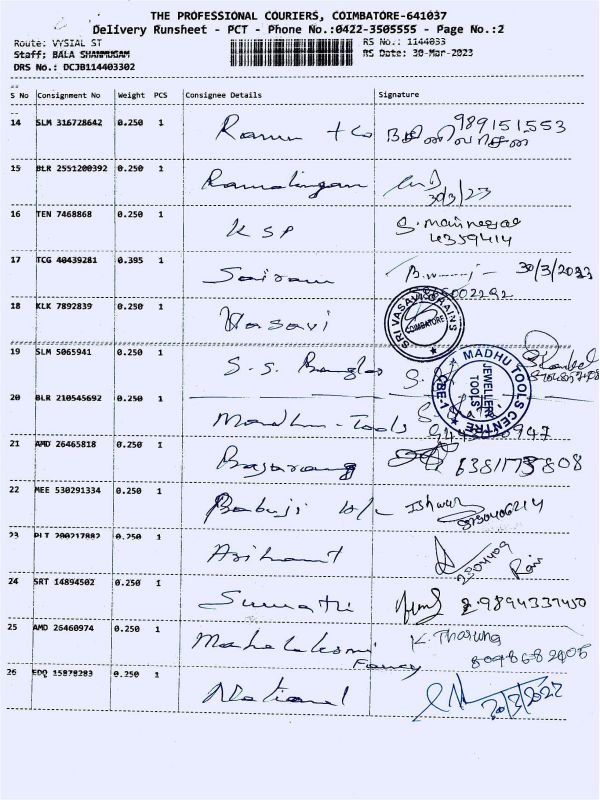 THE PROFESSIONAL COURIERS, COIMBATORE-641037
Delivery Runsheet - PCT - Phone No.:0422-3505555 - Page No.:2
Route: VYSIAL ST
RS No.: 1144033
Staff: BALA SHANMUGAM
RS Date: 30-Mar-2023
DRS No.: DCJB114403302
S No Consignment No Weight PCS Consignee Details Signature
14 SLM 316728642 0.250 1 Ramu + Co 989151553
15 BLR 2551200392 0.250 1 Ramalingam 30/3/23
16 TEN 7468868 0.250 1 KSP 4359414
17 TCG 40439281 0.395 1 Sairam 30/3/2023
18 KLK 7892839 0.250 1 Vasavi
SRI VASAVI GRAINS COIMBATORE
19 SLM 5065941 0.250 1 S.S. Bangles
20 BLR 210545692 0.250 1 Madhu-Tools
MADHU TOOLS CENTRE JEWELLERY TOOLS CBE-1
21 AMD 26465818 0.250 1 Bajarang 6381173808
22 MEE 530291334 0.250 1 Babuji Ishwar
8750406214
23 PLT 200217882 0.250 1 Arihant
2304409
24 SRT 14894502 0.250 1 Sumathi 9894337450
25 AMD 26460974 0.250 1 Mahalakshmi K. Tharuna
Fancy
26 EDQ 15878283 0.250 1 National